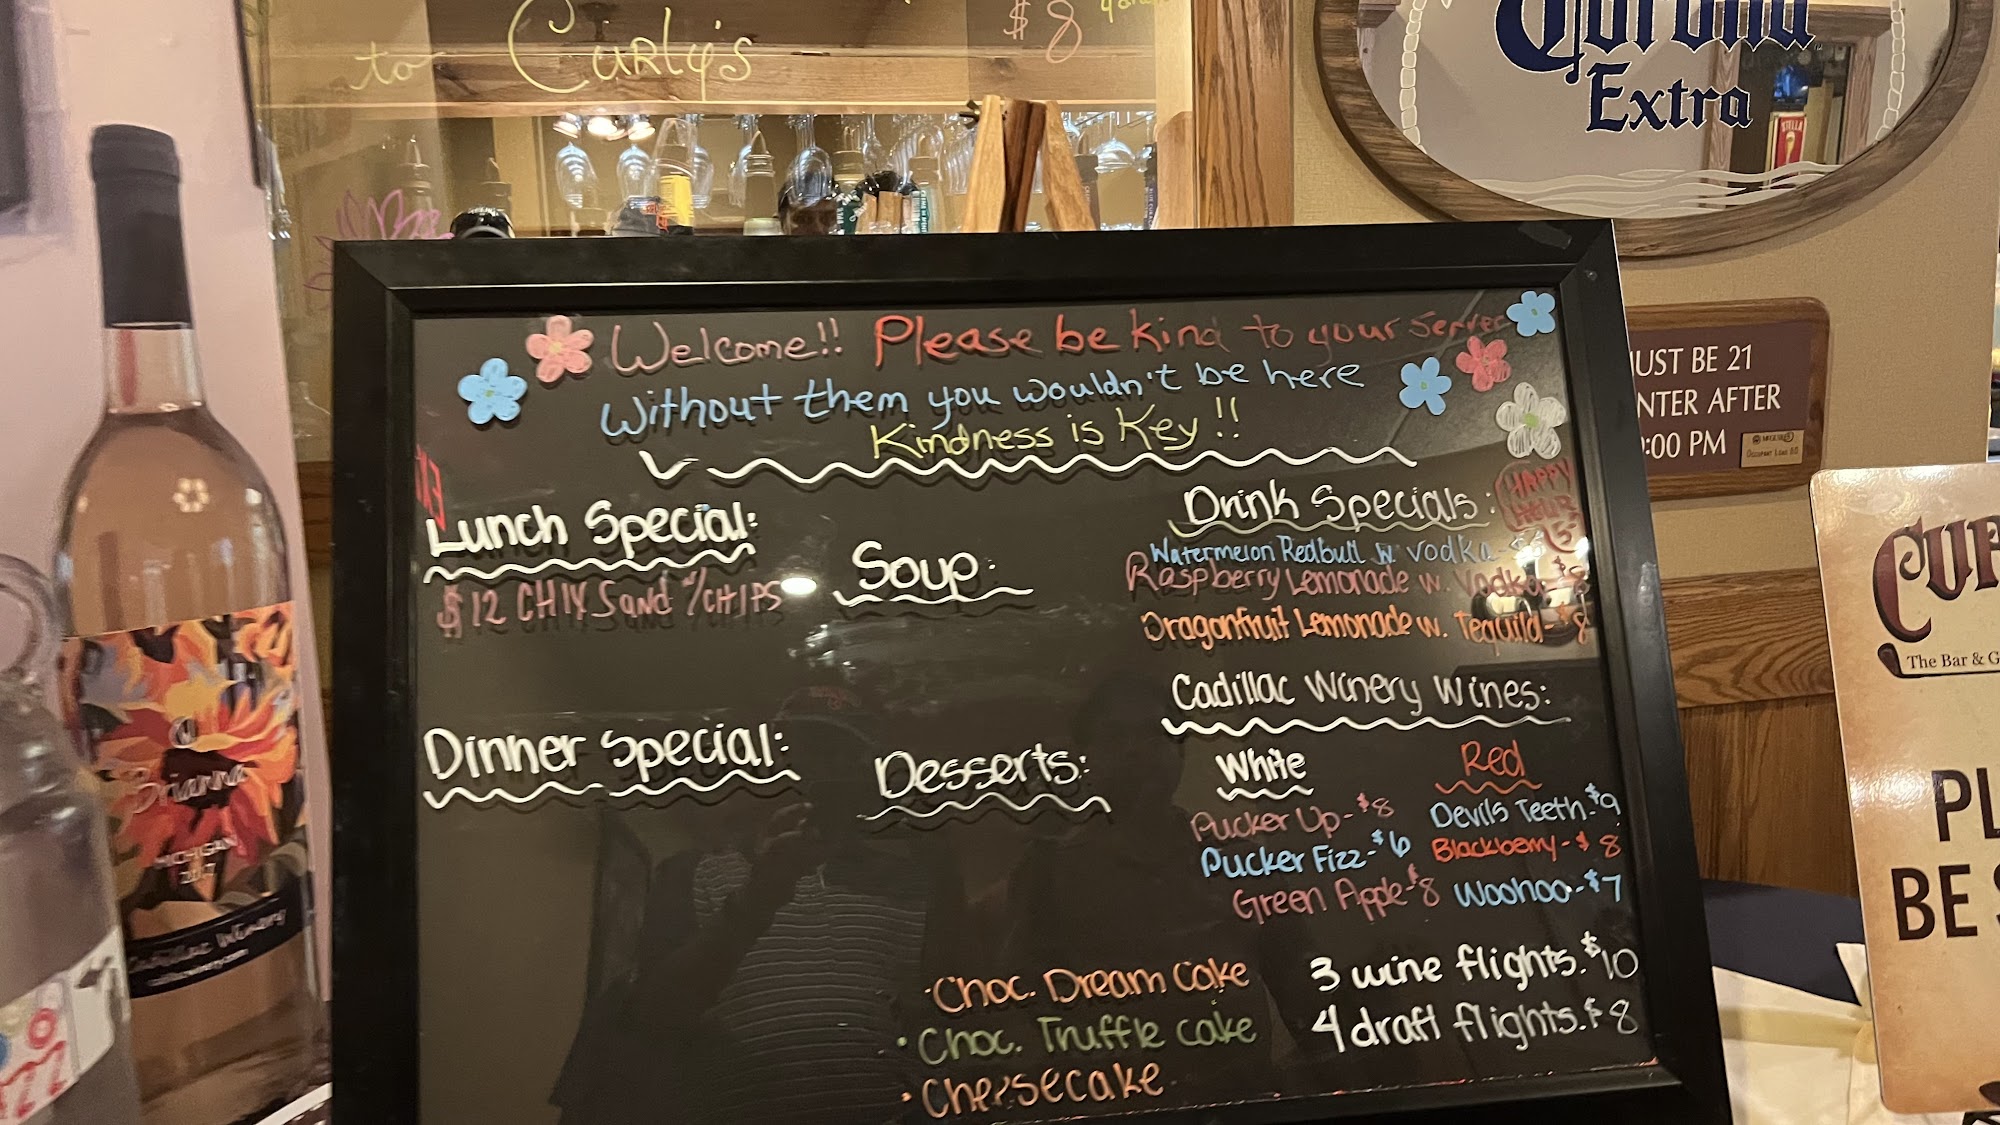 to Curly's
$8
Corona
Extra
STELLA
Welcome!! Please be kind to your server
Without them you wouldn't be here
Kindness is Key!!
UST BE 21
NTER AFTER
:00 PM
Lunch Special:
$12 CHIX Sand w/CHIPS
Soup:
Drink Specials:
HAPPY
HOUR
Watermelon Redbull w. vodka-
Raspberry Lemonade w. Vodka-$8
Dragonfruit Lemonade w. Tequila-$8
Cadillac Winery Wines:
White
Red
Pucker Up-$8
Devils Teeth-$9
Pucker Fizz-$6
Blackberry-$8
Green Apple-$8
Woohoo-$7
Dinner Special:
Desserts:
·Choc. Dream Cake
·Choc. Truffle Cake
·Cheesecake
3 wine flights.$10
4 draft flights.$8
Cur
The Bar & G
PL
BE S
Brianna
MICHIGAN
2017
Cadillac Winery